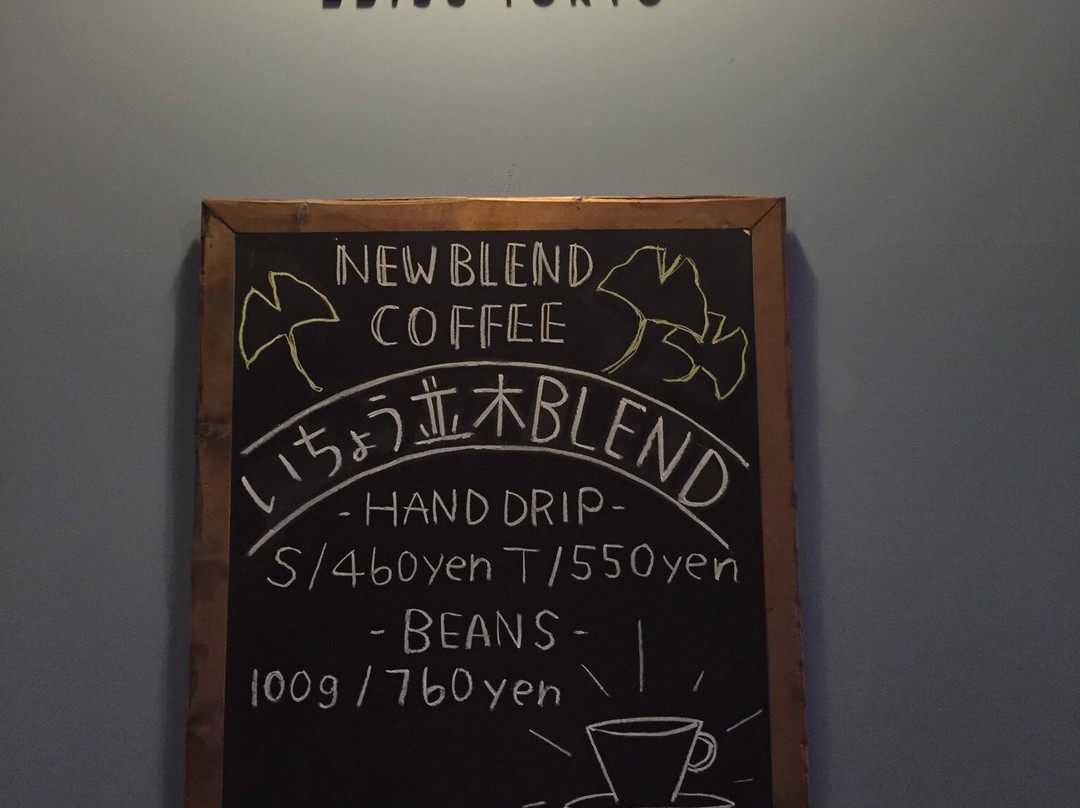 NEW BLEND
COFFEE
いちょう並木BLEND
-HAND DRIP-
S/460yen T/550yen
-BEANS-
100g/760yen